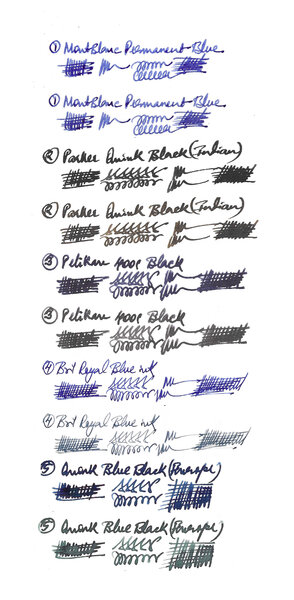 ① MontBlanc Permanent Blue
① MontBlanc Permanent Blue
② Parker Quink Black (Indian)
② Parker Quink Black (Indian)
③ Pelikan 4001 Black
③ Pelikan 4001 Black
④ Bril Royal Blue ink
④ Bril Royal Blue ink
⑤ Quink Blue Black
⑤ Quink Blue Black